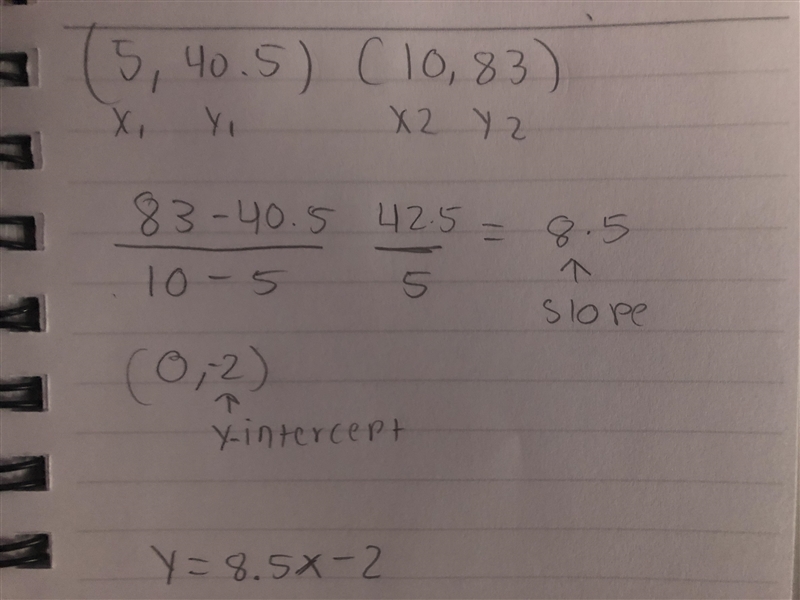 (5, 40.5) (10, 83)
X1 Y1 X2 Y2
83 - 40.5 42.5 = 8.5
10 - 5 5
↑
slope
(0, -2)
↑
Y-intercept
Y = 8.5x - 2